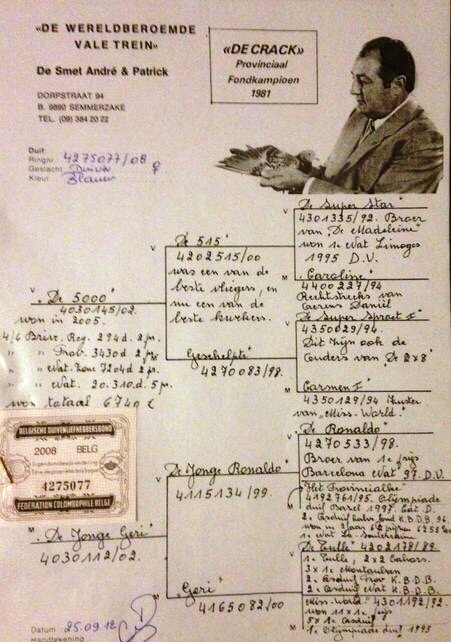 «DE WERELDBEROEMDE
VALE TREIN»
De Smet André & Patrick
DORPSTRAAT 94
B. 9890 SEMMERZAKE
TEL. (09) 384 20 22
«DE CRACK»
Provinciaal
Fondkampioen
1981
Duif:
Ringnr. 4275077/08
Geslacht: Duivin ♀
Kleur Blauw
V "De 5000"
4030145/02.
won in 2005.
4/6 Briv. Reg. 294 d. 2 pr.
" " Prov. 3430 d. 2 pr.
" " Nat. Zone 7204 d. 2 pr.
" " Nat. 20.310 d. 5 pr.
won totaal 6740 €
V "De 515"
4202515/00
was een van de
beste vliegers, en
nu een van de
beste kwekers.
M "Geschelpte"
4270083/98.
V "De Super Star"
4301335/92. Broer
van "De Madeleine"
won 1e Nat Limoges
1995 D.V.
M "Caroline"
4400227/94
Rechtstreeks van
Daniël
V "De Super Sproet I"
4350029/94.
Dit zijn ook de
Ouders van "De 2x8"
M "Carmen I"
4350129/94 Zuster
van "Miss-World."
BELGISCHE DUIVENLIEFHEBBERSBOND
2008 BELG
4275077
FEDERATION COLOMBOPHILE BELGE
M "De Jonge Geri"
4030112/02.
V "De Jonge Ronaldo"
4115134/99.
M "Geri"
4165082/00
V "De Ronaldo"
4270533/98.
Broer van 1e prijs
Barcelona Nat 97. D.V.
M "Het Provinciaaltje"
4192761/95. Olympiade
duif Basel 1997 Cat D.
2e Asduif halve fond K.B.D.B. 96
1e Nat. La Souterraine
V "De Tulle" 4202178/89.
1e Tulle, 2x2 Cahors.
3x1e Montauban
2e Asduif Prov K.B.D.B.
2e Asduif Nat K.B.D.B.
M "Miss-World" 4301192/92.
won 11x1e prijs
5x1e Asduif
1e Olympiade duif 1995
Datum 25.09.12
Handtekening